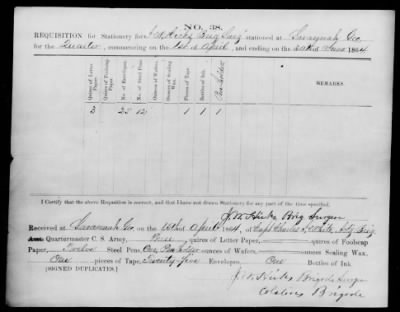 No. 38.
REQUISITION for Stationery for J. W. Hicks Brig Surg stationed at Savannah Geo
for the Quarter, commencing on the 1st of April, and ending on the 30th June 1864
Quires of Letter Paper. Quires of Foolscap Paper. No. of Envelopes. No. of Steel Pens. Ounces of Wafers. Ounces of Sealing Wax. Pieces of Tape. Bottles of Ink. Pen Holder REMARKS.
3 25 12 1 1 1
I Certify that the above Requisition is correct, and that I have not drawn Stationery for any part of the time specified.
Brig Surgeon
Received at Savannah Geo, on the April 1864, of Capt Charles
Quartermaster C. S. Army, quires of Letter Paper, quires of Foolscap
Paper, Twelve Steel Pens, One Pen Holder ounces of Wafers, ounces Sealing Wax,
One pieces of Tape, Twenty five Envelopes, One Bottles of Ink.
[SIGNED DUPLICATES.]
Brigade Surgeon
Brigade